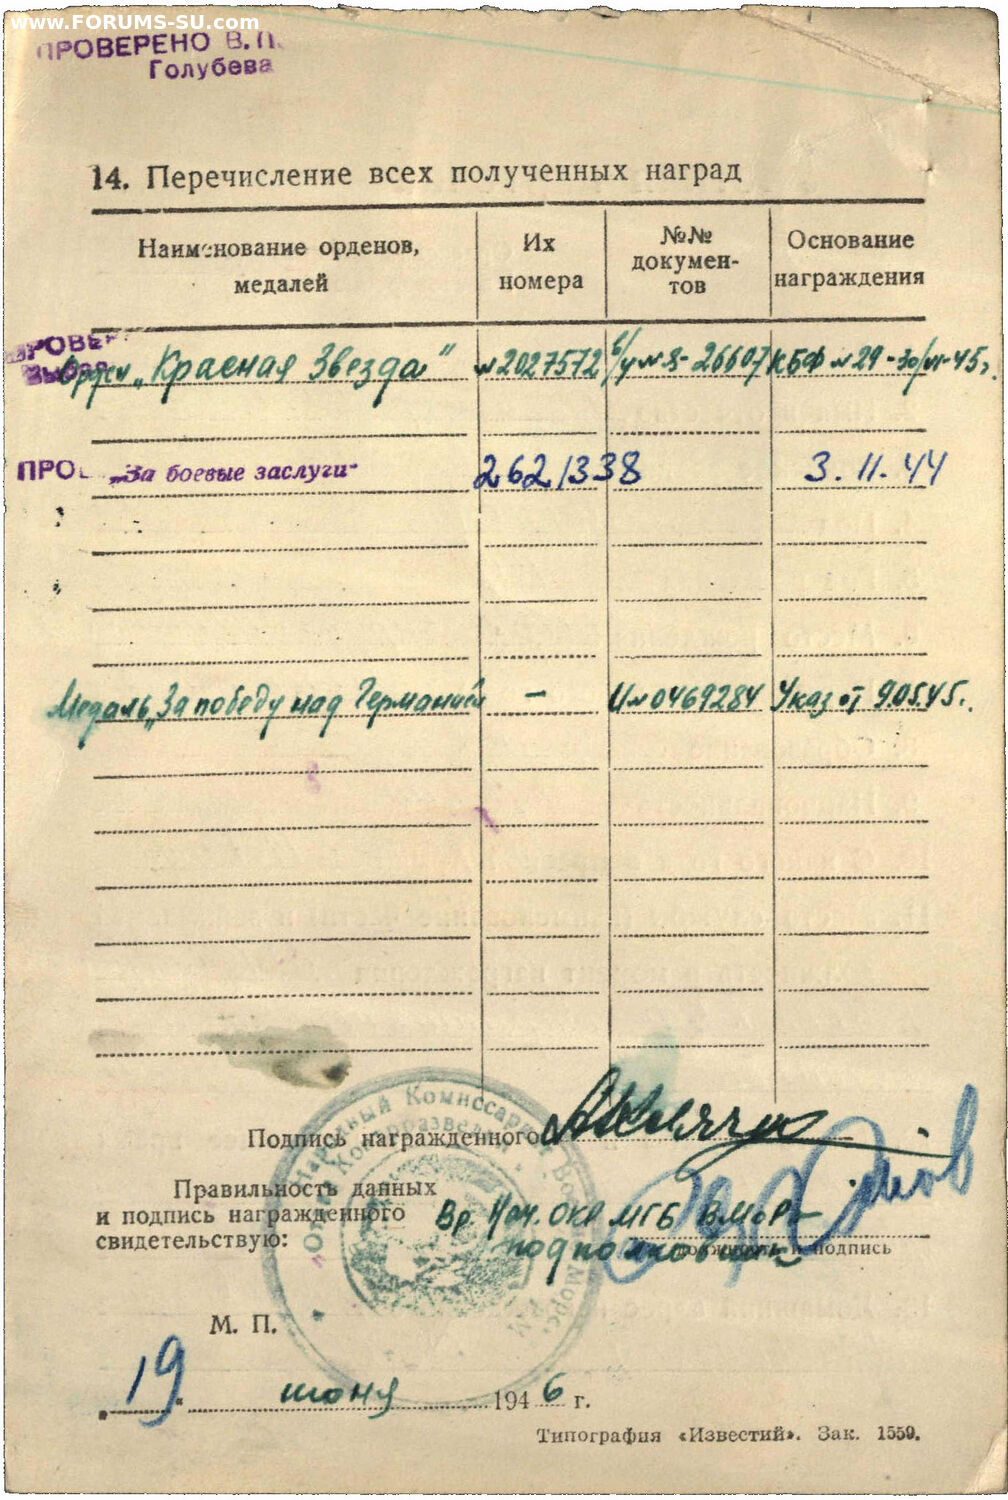 www.FORUMS-SU.com
ПРОВЕРЕНО В.П.
Голубева
14. Перечисление всех полученных наград
Наименование орденов, медалей
Их номера
№№ документов
Основание награждения
ПРОВЕР
Орден „Красная Звезда" №2027572 б/у № З-26607 КБФ №29-30/VI-45г.
ПРО „За боевые заслуги" 2621338 3.11.44
Медаль „За победу над Германией — И№0469284 Указ от 9.05.45г.
Подпись награжденного
Правильность данных
и подпись награжденного
свидетельствую:
Вр. Нач. ОКР МГБ ВМОР
подполковник
должность и подпись
Народный Комиссариат
М. П.
„19" июня 1946 г.
Типография «Известий». Зак. 1559.